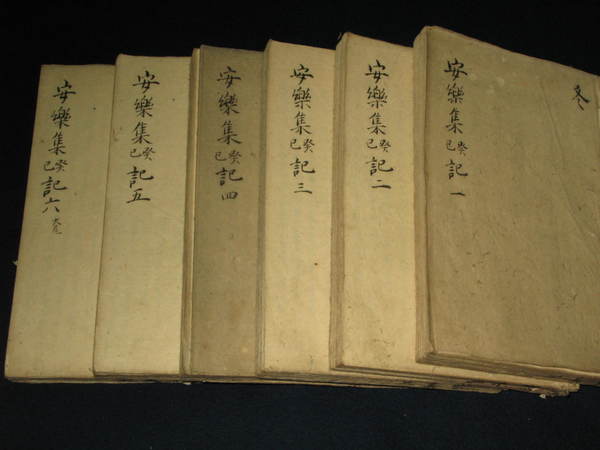 安樂集癸巳記一
冬
安樂集癸巳記二
安樂集癸巳記三
安樂集癸巳記四
安樂集癸巳記五
安樂集癸巳記六